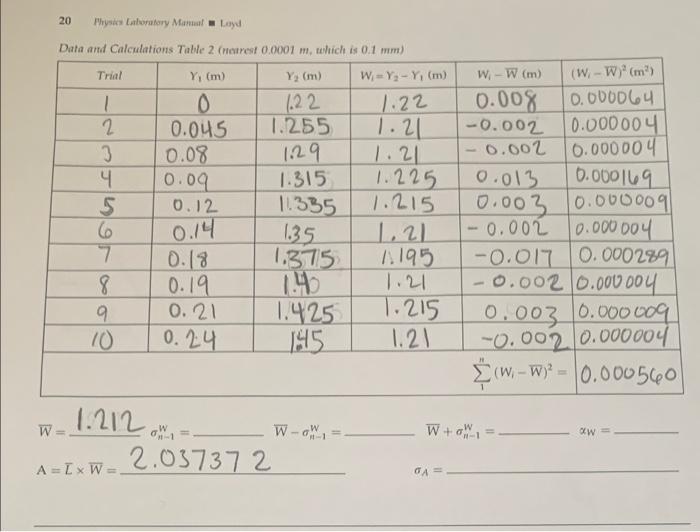 20 Physics Laboratory Manual ■ Loyd
Data and Calculations Table 2 (nearest 0.0001 m, which is 0.1 mm)
Trial Y₁ (m) Y₂ (m) Wᵢ = Y₂ – Y₁ (m) Wᵢ – W̅ (m) (Wᵢ – W̅)² (m²)
1 0 1.22 1.22 0.008 0.000064
2 0.045 1.255 1.21 -0.002 0.000004
3 0.08 1.29 1.21 -0.002 0.000004
4 0.09 1.315 1.225 0.013 0.000169
5 0.12 1.335 1.215 0.003 0.000009
6 0.14 1.35 1.21 -0.002 0.000004
7 0.18 1.375 1.195 -0.017 0.000289
8 0.19 1.40 1.21 -0.002 0.000004
9 0.21 1.425 1.215 0.003 0.000009
10 0.24 1.45 1.21 -0.002 0.000004
∑₁ⁿ (Wᵢ – W̅)² = 0.000560
W̅ = 1.212 σᵂₙ₋₁ = W̅ – σᵂₙ₋₁ = W̅ + σᵂₙ₋₁ = αw =
A = L̅ × W̅ = 2.037372 σA =